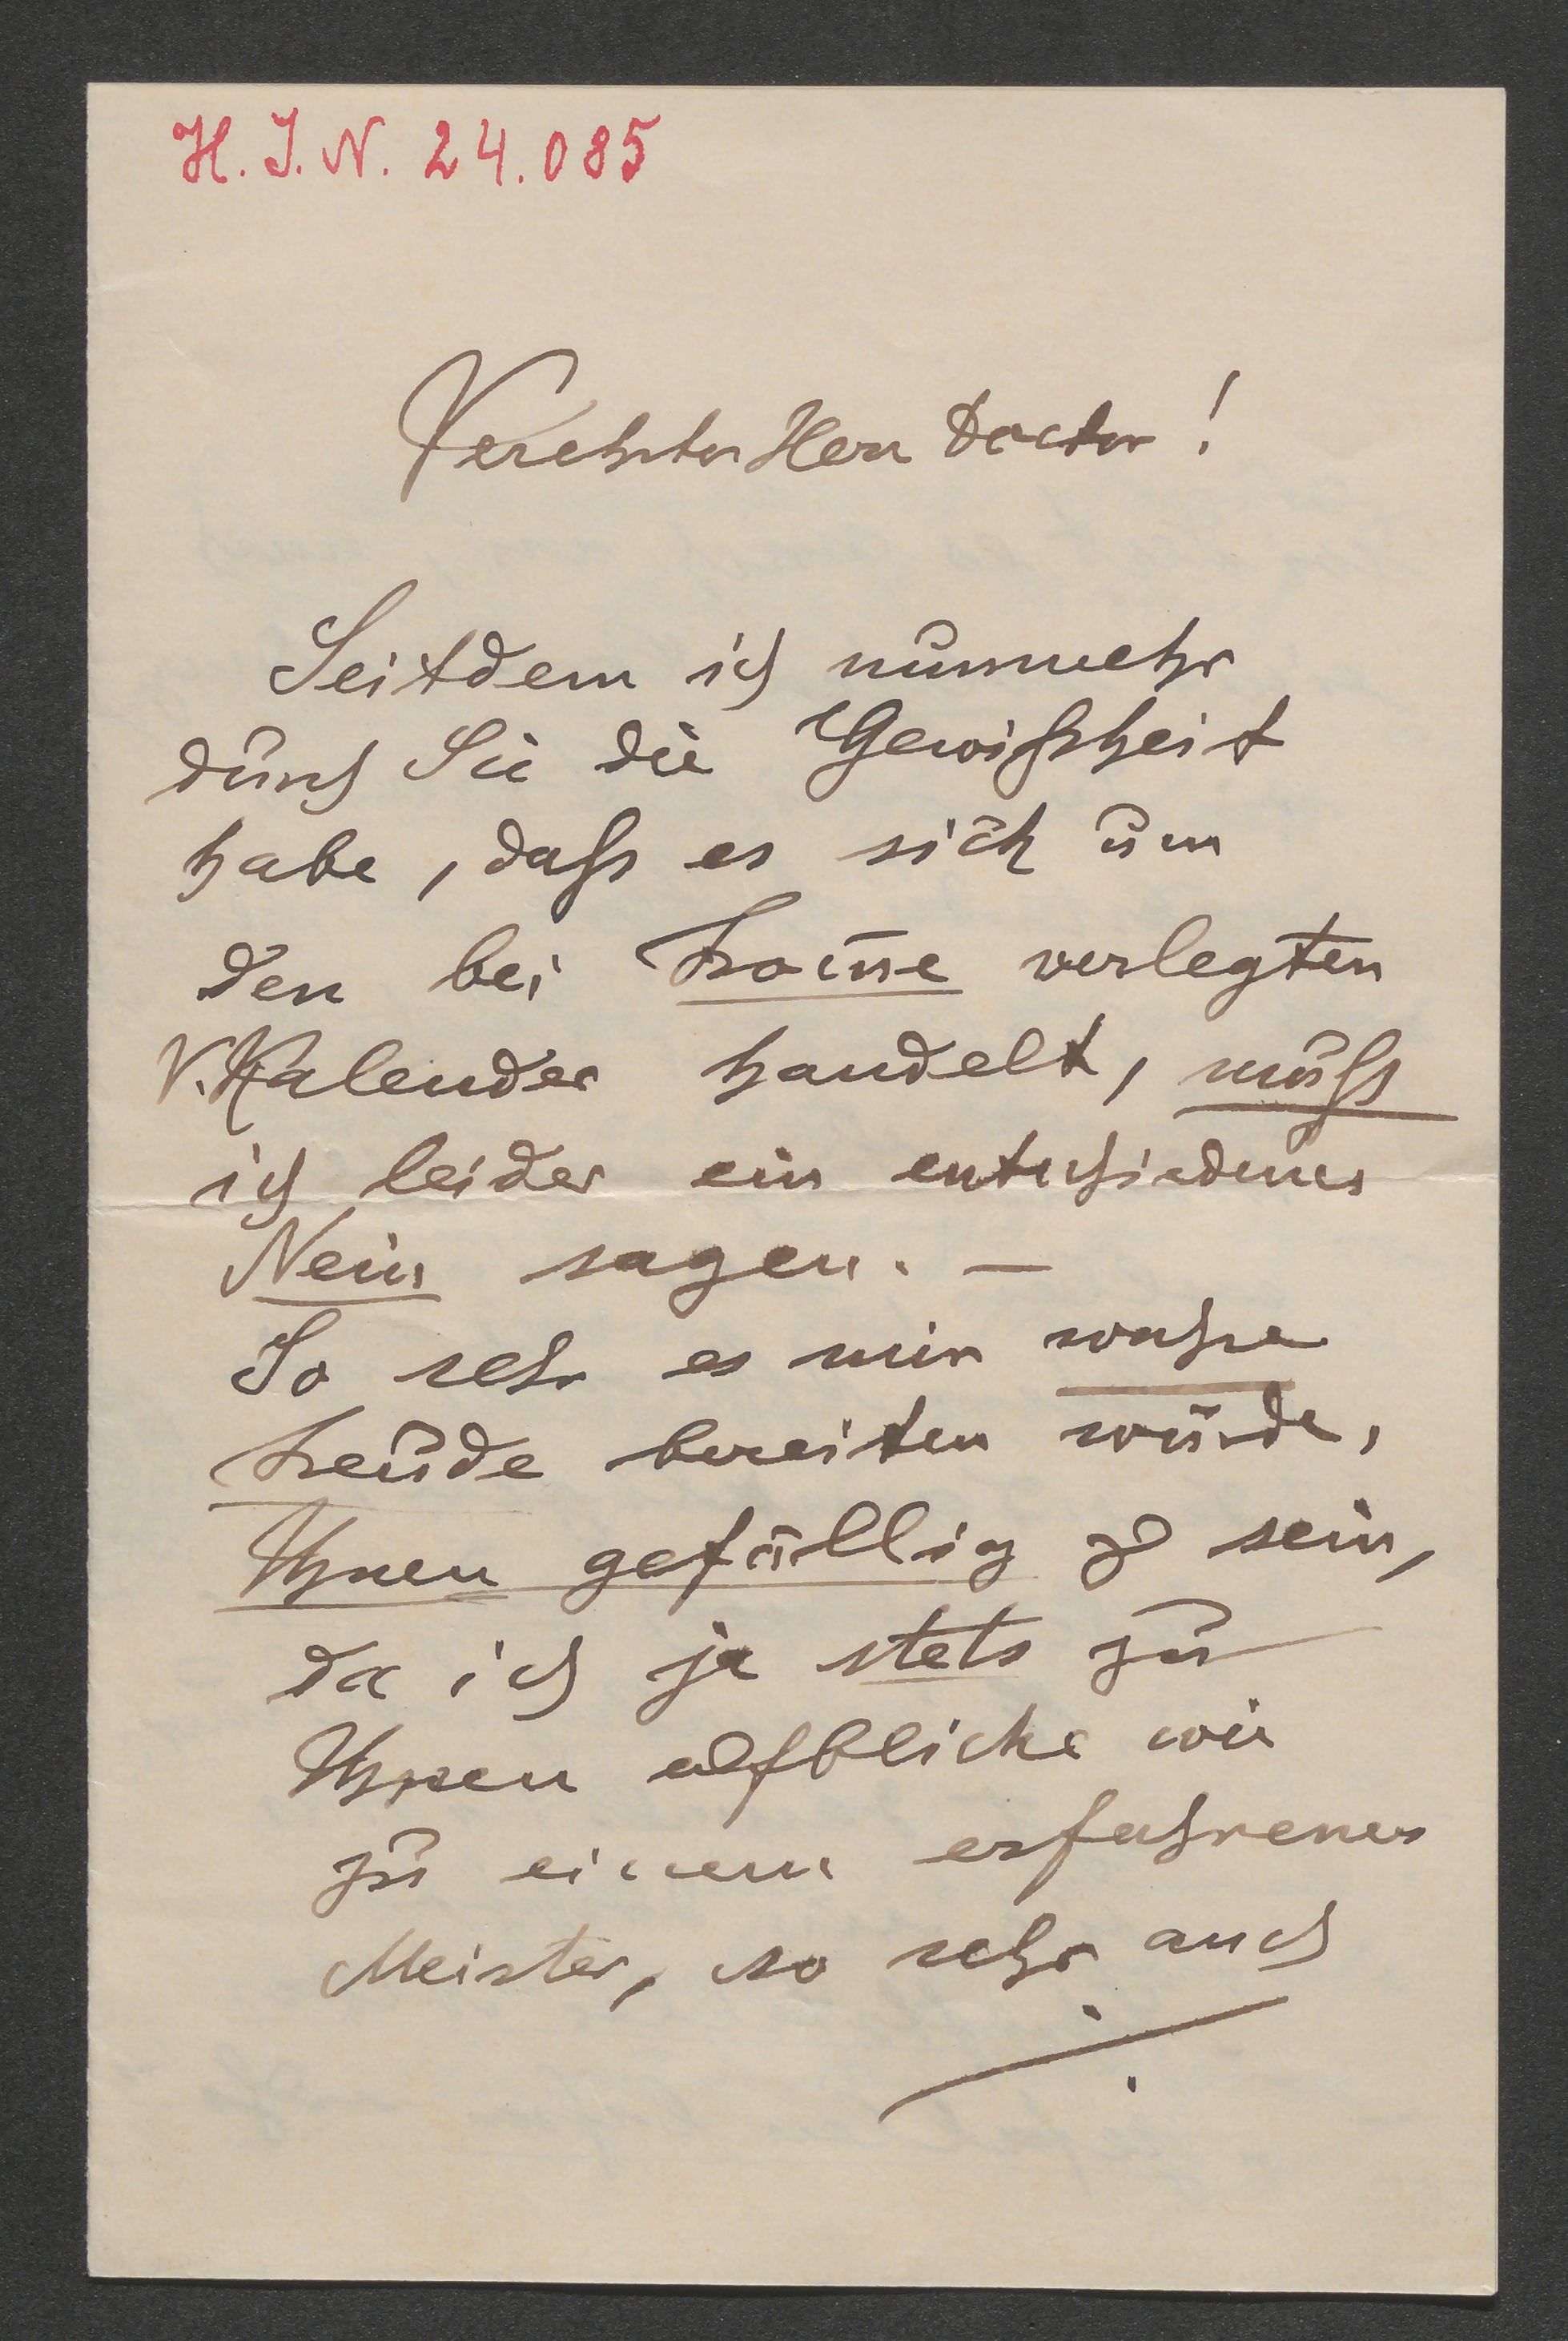 H. I. N. 24.085
Verehrter Herr Doctor!
Seitdem ich nunmehr
durch Sie die Gewißheit
habe, daß es sich um
den bei Fromme verlegten
V. Kalender handelt, muß
ich leider ein entschiedenes
Nein sagen. —
So sehr es mir wahre
Freude bereiten würde,
Ihnen gefällig zu sein,
da ich ja stets zu
Ihnen aufblicke wie
zu einem erfahrenen
Meister, so sehr auch